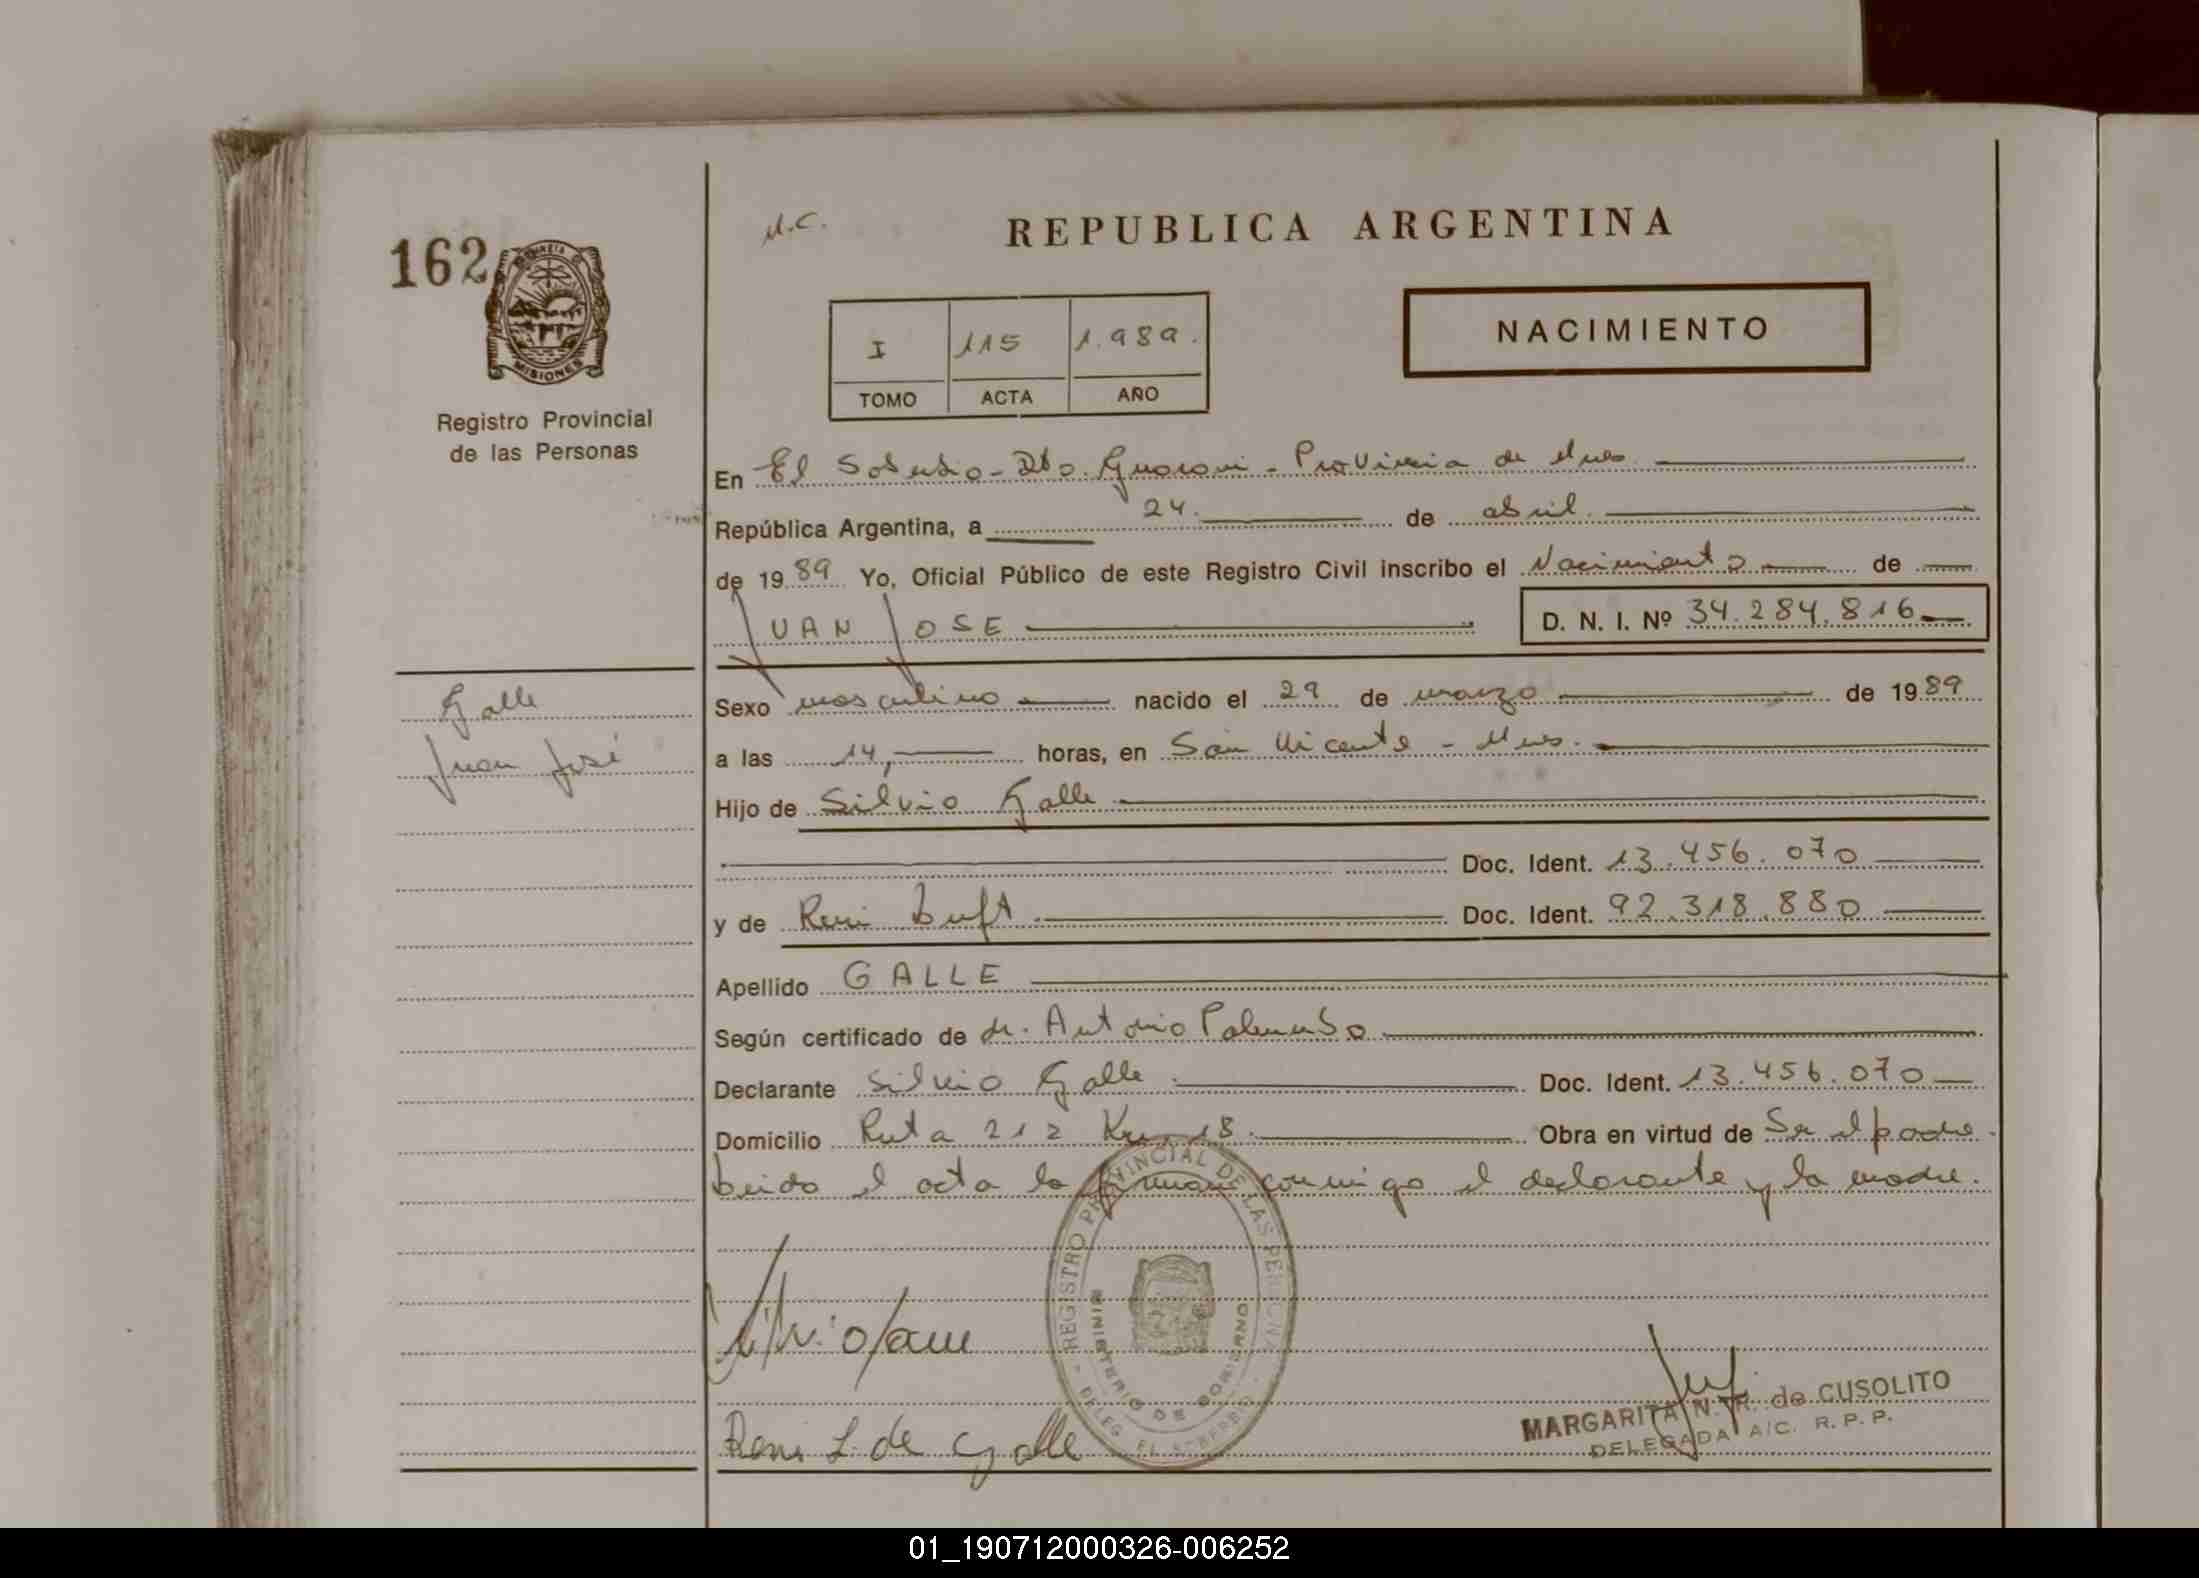 162
M.C.
REPUBLICA ARGENTINA
PROVINCIA DE
MISIONES
I 115 1.989.
TOMO ACTA AÑO
NACIMIENTO
Registro Provincial
de las Personas
En El Soberbio - Dto. Guaraní - Provincia de Mnes.
República Argentina, a 24. de abril.
de 1989 Yo, Oficial Público de este Registro Civil inscribo el Nacimiento de
JUAN JOSE D. N. I. Nº 34.284.816
Galle
Juan José
Sexo masculino nacido el 29 de marzo de 1989
a las 14, horas, en San Vicente - Mnes.
Hijo de Silvio Galle
Doc. Ident. 13.456.070
y de Reni Luft Doc. Ident. 92.318.880
Apellido GALLE
Según certificado de dr. Antonio Palumbo
Declarante Silvio Galle Doc. Ident. 13.456.070
Domicilio Ruta 212 Km 18. Obra en virtud de Ser el padre.
Leida el acta la firman conmigo el declarante y la madre.
REGISTRO PROVINCIAL DE LAS PERSONAS
MINISTERIO DE GOBIERNO
- DELEG. EL SOBERBIO -
Silvio Galle
Reni L. de Galle
MARGARITA N. R. de CUSOLITO
DELEGADA A/C. R. P. P.
01_190712000326-006252